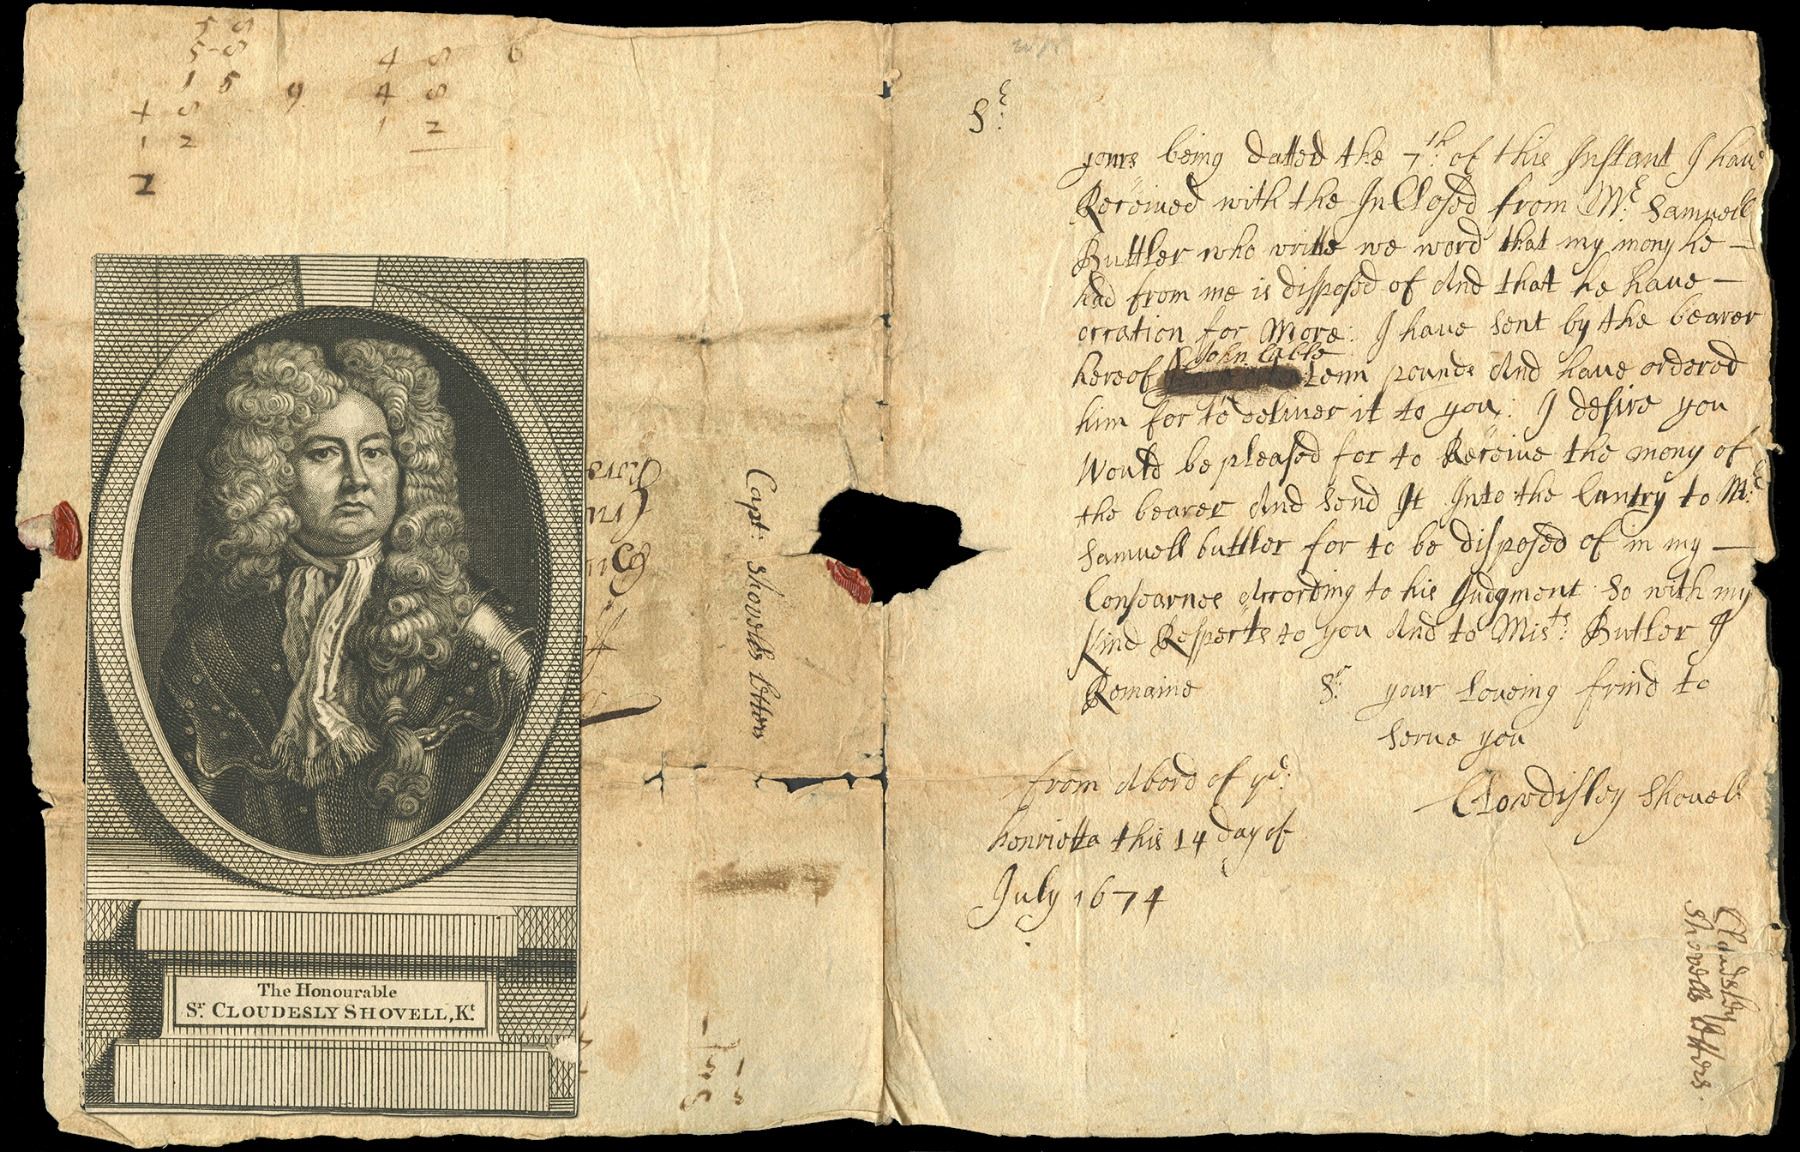 5 8
5-8 4 8 6
1 5 9 4 8
+ 8 1 2
1 2
1
The Honourable
Sr. CLOUDESLY SHOVELL, Kt.
Capt: Shovells Letters
Sr:
yours being datted the 7th: of this Instant I have
Received with the InClosed from Mr: Samuell
Buttler who writte me word that my mony he –
had from me is disposed of And that he have –
occation for More: I have sent by the bearer
John Cable
hereof tenn pounds And have ordered
him for to deliver it to you: I desire you
Would be pleased for to Receive the mony of
the bearer And send It Into the Cuntry to Mr:
Samuell buttler for to be disposed of in my –
Consearnes According to his Judgment so with my
Kind Respects to you And to Mists: Butler I
Remaine Sr: your Loveing frind to
serve you
Clowdisley Shovell
from Abord of ye:
henrietta this 14 day of
July 1674
Cloudsley
Shovells Letters.